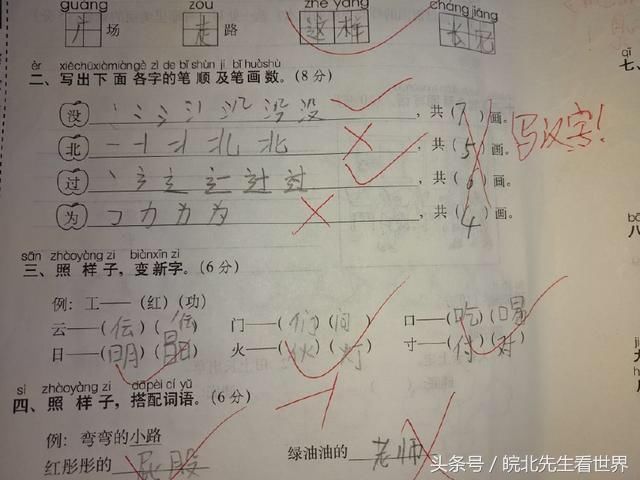 guǎng zǒu zhè yàng cháng jiāng
广场 走路 这样 长江
èr xiěchūxiàmiàngè zì de bǐshùn jí bǐhuàshù
二、写出下面各字的笔顺及笔画数。(8分)
没 没 没 ,共(7)画。
北 北 北 ,共(5)画。 写汉字!
过 过 ,共(6)画。
为 力 为 为 ,共(4)画。
sān zhàoyàng zi biànxīn zì
三、照样子,变新字。(6分)
例:工——(红)(功)
云——(伝)( ) 门——(们)(间) 口——(吃)(喝)
日——(明)(晶) 火——(伙)(灯) 寸——(付)(对)
sì zhàoyàng zi dāpèi cí yǔ
四、照样子,搭配词语。(6分)
例:弯弯的小路
红彤彤的 屁股 绿油油的 老师
头条号 / 皖北先生看世界
qī
七、
八